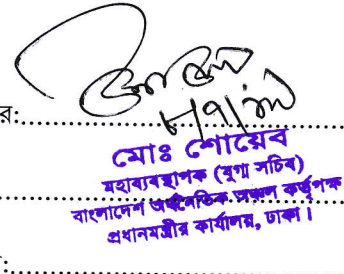 র:
মোঃ শোয়েব
মহাব্যবস্থাপক (যুগ্ম সচিব)
বাংলাদেশ অর্থনৈতিক অঞ্চল কর্তৃপক্ষ
প্রধানমন্ত্রীর কার্যালয়, ঢাকা।